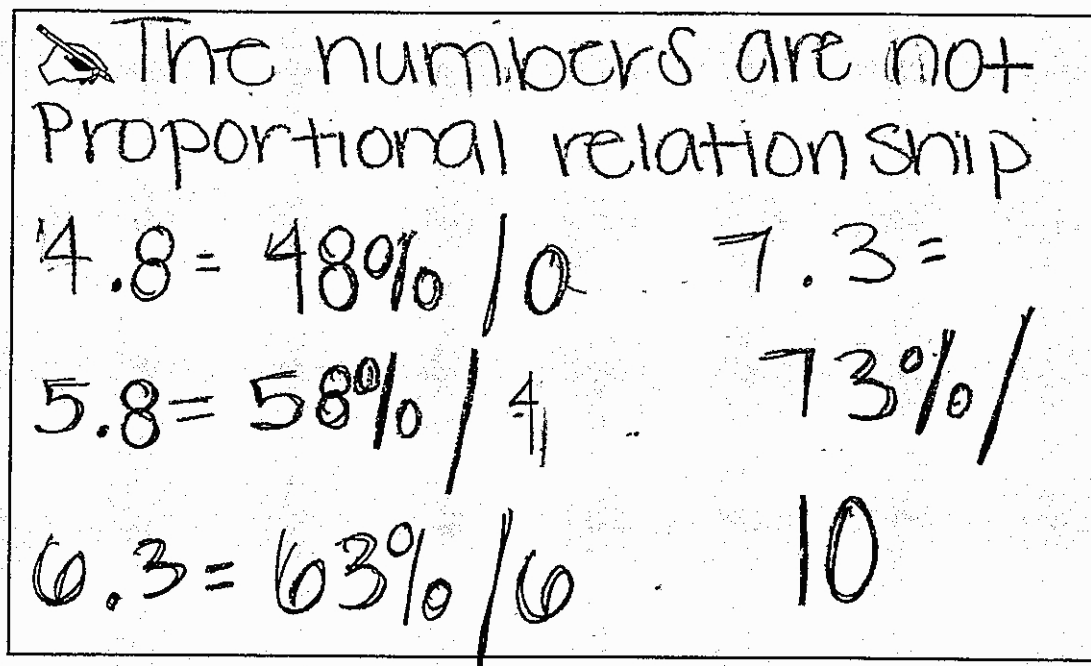 The numbers are not
Proportional relationship
4.8 = 48% / 0
7.3 =
73% /
10
5.8 = 58% / 4
6.3 = 63% / 6